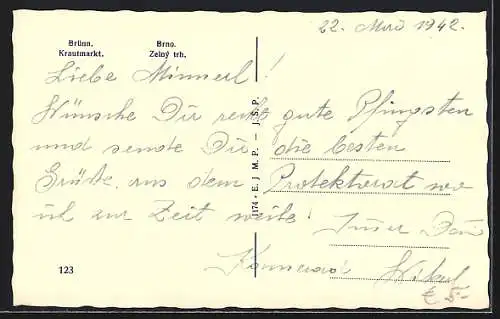 22. Mai 1942.
Brünn. Brno.
Krautmarkt. Zelný trh.
Liebe Minnerl!
Wünsche Dir recht gute Pfingsten
und sende Dir die besten
Grüße aus dem Protektorat wo
ich zur Zeit weile!
Dein
1174 - E. J. M. P. - J. S. P.
123
€ 5.-